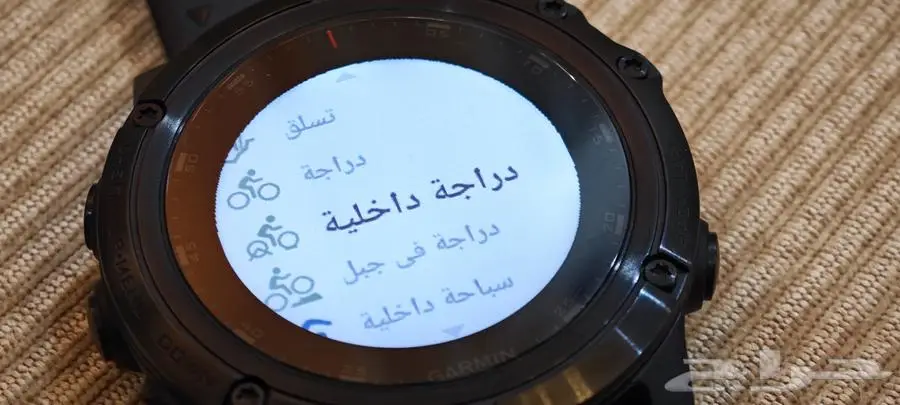 تسلق
دراجة
دراجة داخلية
دراجة في جبل
سباحة داخلية
GARMIN
حراج